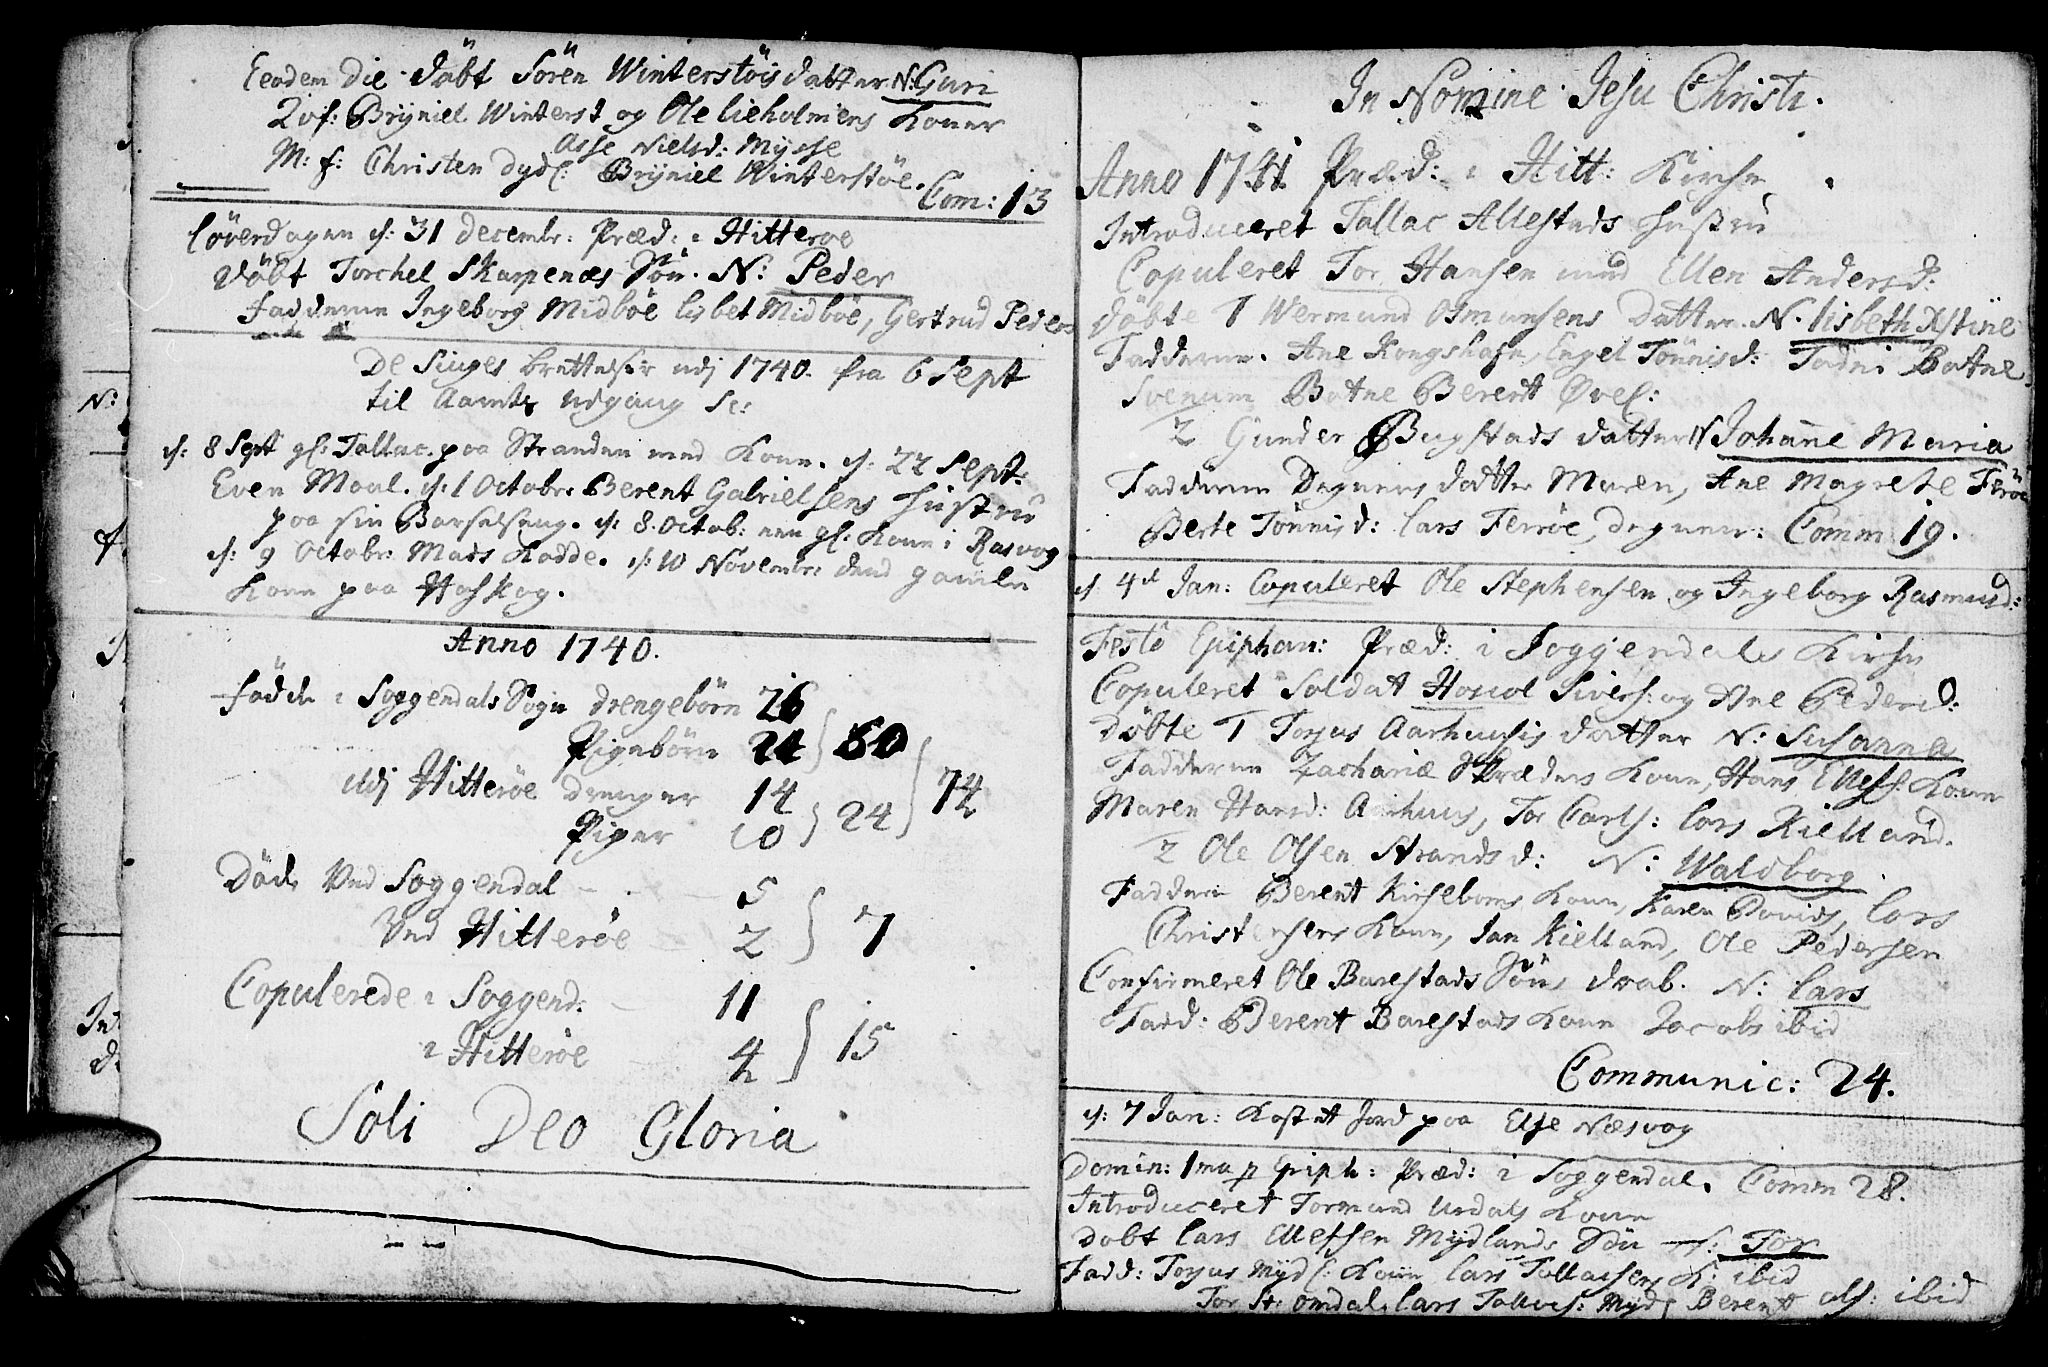 Eendem Die döbt Sören Winterstöis datter N: Guri
2 vf: Bryniel Winterst og Ole Lieholmens Koner
Asse Nielsd: Mysse
M: f: Christen Dydl: Bryniel Winterstöe.
Com: 13
Löverdagen d: 31 Decembr: Præd: i Hitteroe
döbt Torchel Skarpenæs Sön. N: Peder
Fadderne Ingeborg Midböe Lisbet Midböe, Gertrud Peders
De Siuges brettelser udj 1740. fra 6 Sept
til Aarets udgang Sc:
d: 8 Sept gl: Tallac paa Stranden med Kone. d: 22 Sept:
Even Moal. d: 1 Octobr: Berent Gabrielsens Hustru
paa sin Barselseng. d: 8. Octob: een gl: Kone i Rasvog
d: 9 Octobr: Mads Kodde. d: 10 Novembr: dend gamle
Kone paa Hafskog.
Anno 1740.
Födde i Soggendals Sogn drengebörn 26
Pigebörn 24 } 50
Udj Hitteröe drenger 14
Piger 10 } 24 } 74
Döde Ved Soggendal - - - 5
Ved Hitteröe - 2 } 7
Copulerede i Soggend: - 11
i Hitteröe 4 } 15
Soli Deo Gloria
In Nomine Jesu Christi.
Anno 1741 Præd: i Hitt: Kirke
Introduceret Tallac Allestads hustru
Copuleret Tor Hansen med Ellen Andersd:
Döbte 1 Wermund Osmunsens Datter. N. Lisbeth Xstine
Fadderne. Ane Kongshafn, Engel Tönnisd: Todni Botne
Svenum Botne Berent Øvel:
2 Gunder Bugstads datter N Johanne Maria
Fadderne Degnens datter Maren, Ane Magrete Feröe
Berte Tönnisd: Lars Ferröe, degnen: Comm 19.
d. 4d Jan: Copuleret Ole Stephensen og Ingeborg Rasmusd:
Festo Epiphan: Præd: i Soggendals Kirke
Copuleret Soldat Hoscol Sivers: og Ane Pedersd:
Döbte 1 Torjus Aarhuusis datter N: Susanna
Fadderne Zachariæ Skræders Kone, Hans Ellefs: Kone
Maren Hansd: Aarhuus, Tor Carls: Lars Kielland.
2 Ole Olsen Strands d: N: Waldborg.
Faddere Berent Kirseboms Kone, Karen Davids, Lars
Christensens Kone, Jan Kielland, Ole Pedersen
Confirmeret Ole Barestads Söns daab. N: Lars
Fadd: Berent Barestads Kone Jacobs ibid
Communic: 24.
d: 7 Jan: Kastet Jord paa Else Næsvog
Domin: 1ma p Epiph: Præd: i Soggendal. Comm 28.
Introduceret Tormund Urdals Kone
Döbt Lars Ellefsen Mydlands Sön N: Tor
Fadd: Torjus Mydl: Kone Lars Tallachsens K: ibid
Tor St: omdal, Lars Tallacs: Myd Berent Ols: ibid